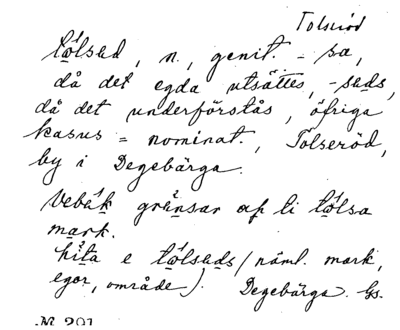 Tolseröd
tölsud, n., genit. - sa,
då det egda utsättes, -suds,
då det underförstås, öfriga
kasus = nominat., Tölseröd,
by i Degebärga.
vebäk gränsar ap li tölsa
mark.
hita e tölsuds (näml. mark,
egor, område). Degebärga. Gs.
№ 201